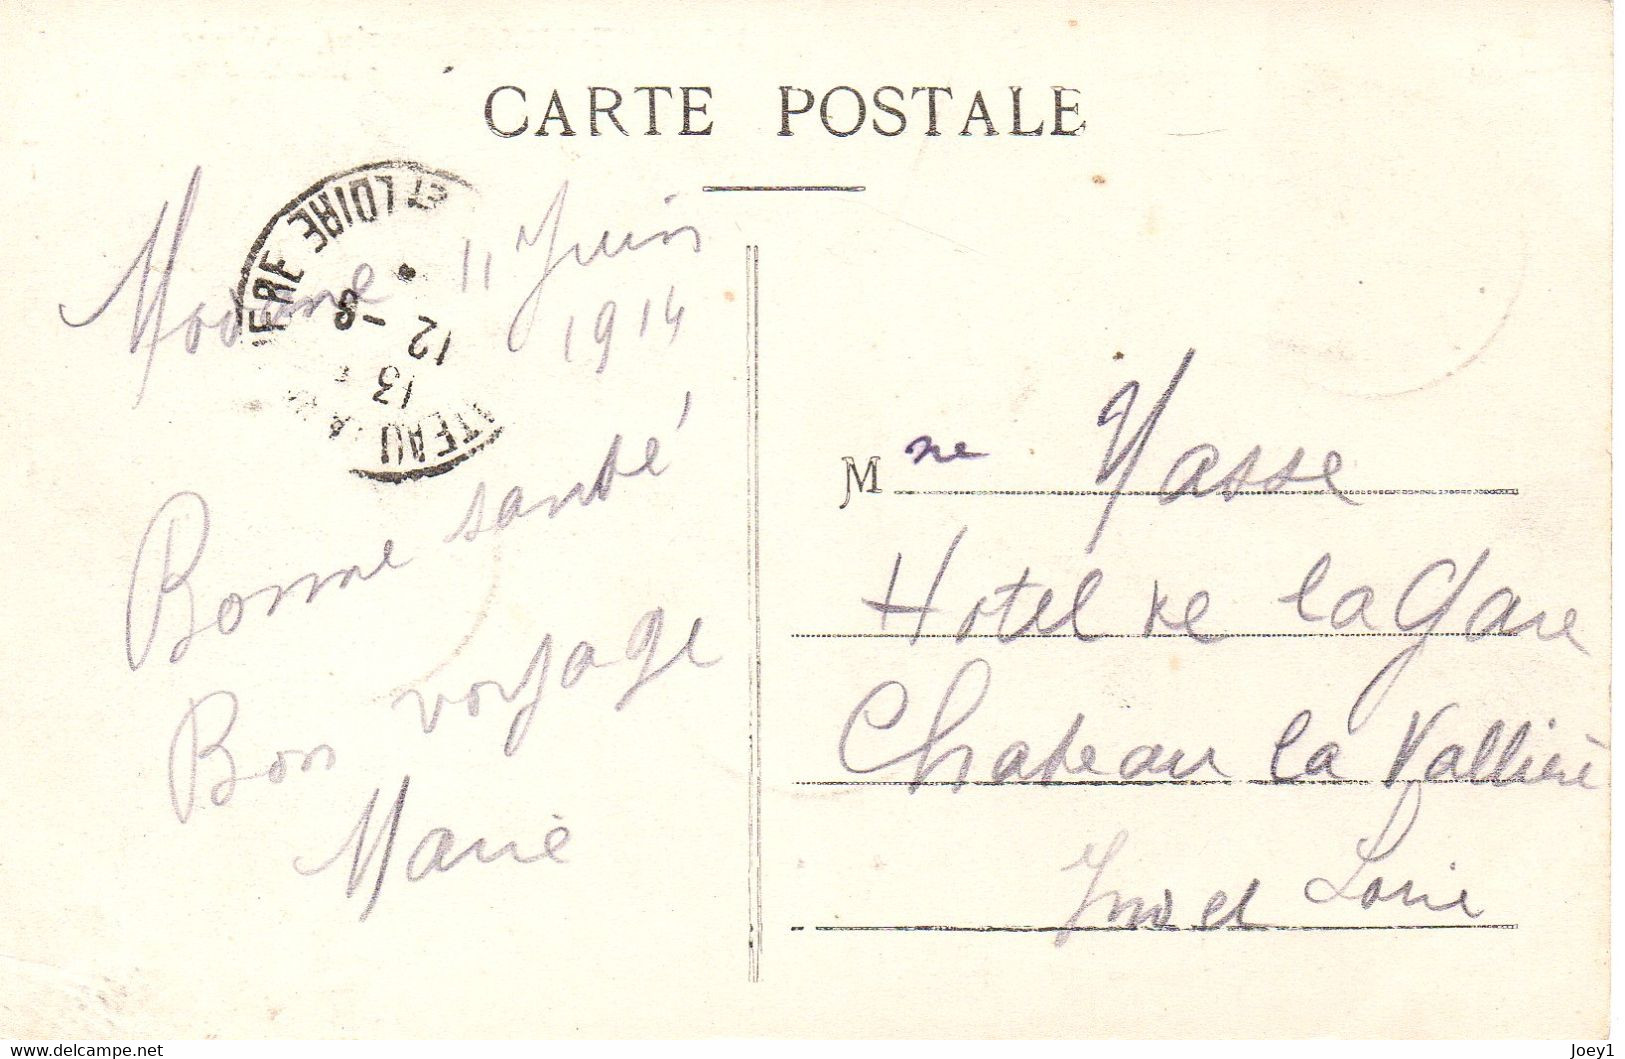 CARTE POSTALE
Modane 11 Juin
1914
ET LOIRE
12 -6
13
TEAU LA
Bonne santé
Bon voyage
Marie
Mme Masse
Hotel de la Gare
Chateau la Vallière
Ind et Loire
www.delcampe.net
Joey1